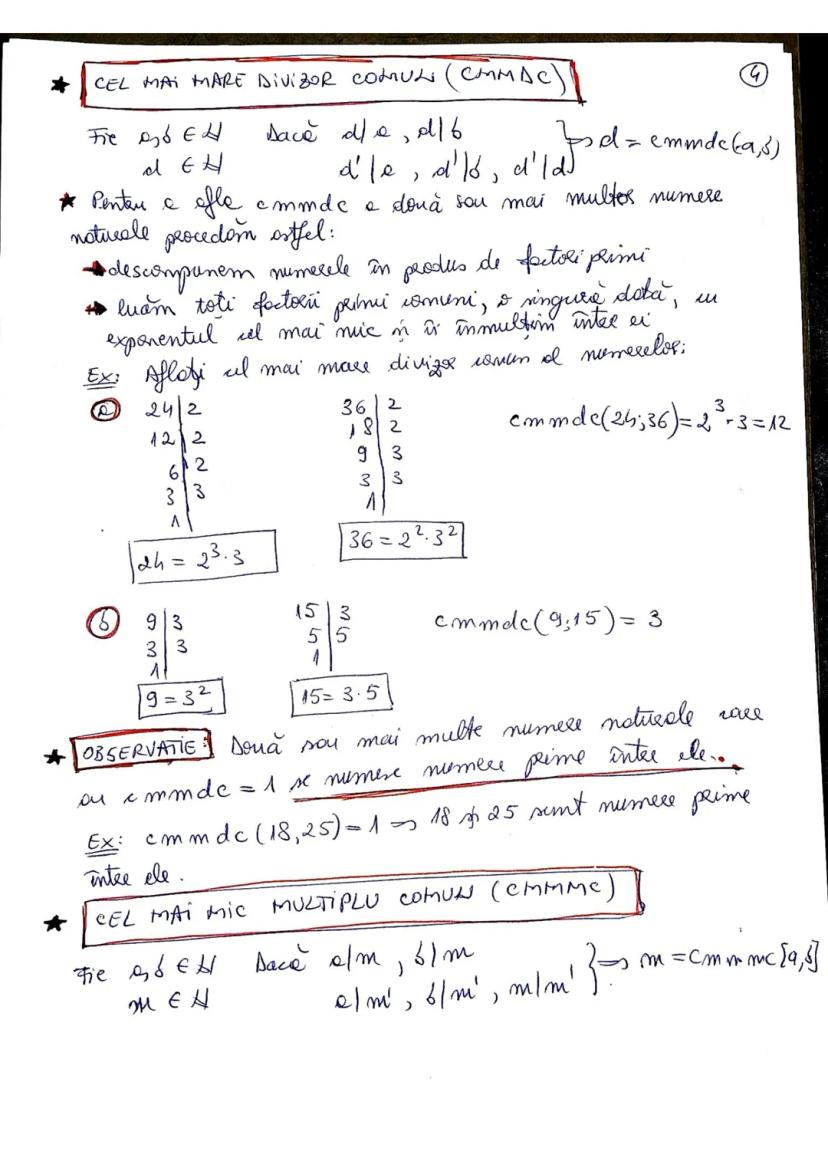 ★ CEL MAI MARE DIVIZOR COMUN (CMMDC)
4
Fie a,b ∈ N Dacă d/a , d/b } => d = cmmdc(a,b)
d ∈ N d'/a , d'/b , d'/d
★ Pentru a afla cmmdc a două sau mai multor numere
naturale procedăm astfel:
→ descompunem numerele în produs de factori primi
→ luăm toți factorii primi comuni, o singură dată, cu
exponentul cel mai mic și îi înmulțim între ei
Ex: Aflați cel mai mare divizor comun al numerelor:
a 24 | 2 36 | 2 cmmdc(24;36) = 2³·3 = 12
12 | 2 18 | 2
6 | 2 9 | 3
3 | 3 3 | 3
1 | 1 |
24 = 2³·3 36 = 2²·3²
b 9 | 3 15 | 3 cmmdc(9;15) = 3
3 | 3 5 | 5
1 | 1 |
9 = 3² 15 = 3·5
★ OBSERVAȚIE: Două sau mai multe numere naturale care
au cmmdc = 1 se numesc numere prime între ele..
Ex: cmmdc(18,25) = 1 => 18 și 25 sunt numere prime
între ele.
★ CEL MAI MIC MULTIPLU COMUN (CMMMC)
Fie a,b ∈ N Dacă a/m , b/m } => m = cmmmc[a,b]
m ∈ N a/m' , b/m' , m/m'